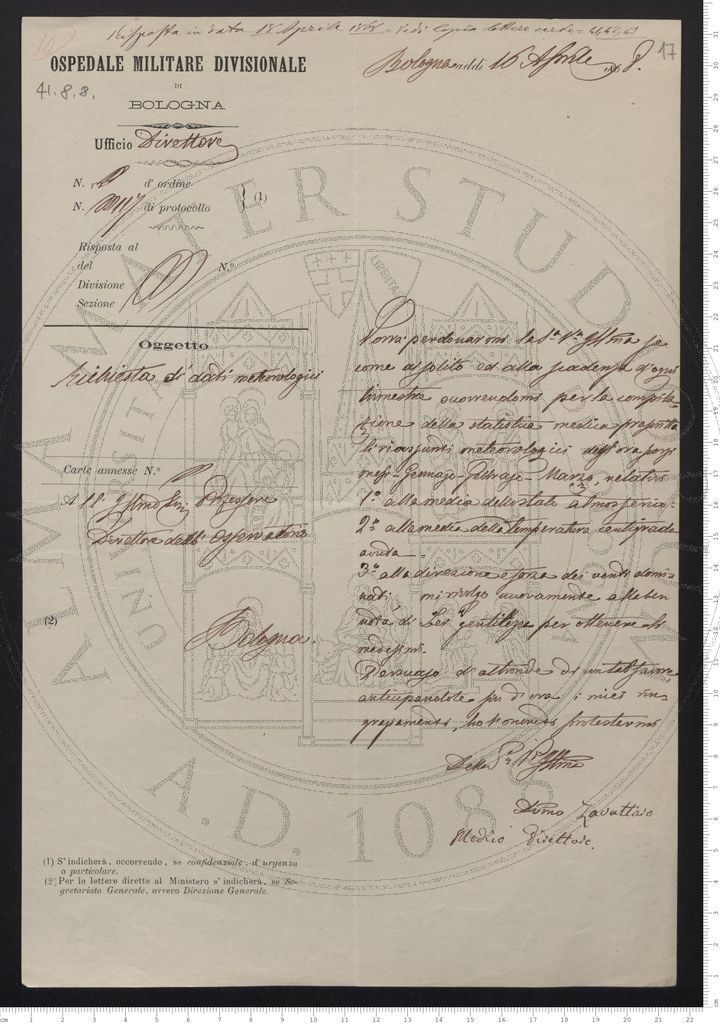 Risposta in data 18 Aprile 1868 = Vedi Copia lettere carte = 41,42,43
17
OSPEDALE MILITARE DIVISIONALE
DI
BOLOGNA
41. 8. 8.
Bologna addì 16 Aprile 1868.
Ufficio Direttore
N. d' ordine
N. di protocollo
(1)
Risposta al
del N.º
Divisione
Sezione
Oggetto
Richiesta di dati meteorologici
Carte annesse N.º
All' Illmo Sig. Professore
Direttore dell' Osservatorio
(2)
Bologna.
Vorrà perdonarmi la S.a V.a Illma se
come al solito ed alla scadenza d'ogni
trimestre occorrendomi per la compila-
zione della statistica medica
li riassunti meteorologici degli ora scorsi
mesi - Gennajo - Febbrajo - Marzo, relativi
1.º alla media dello stato atmosferico:
2.º alla media della temperatura centigrada
avuta =
3.º alla direzione e forza dei venti domi-
nati mi rivolgo nuovamente alla ben
nota di Lei gentilezza per ottenere li
medesimi.
Persuaso d'altronde di un tal favore
anticipandole sin d'ora i miei rin-
graziamenti, ho l'onore di protestarmi
Della S.a V.a Illma
Devmo Zavattaro
Medico Direttore.
(1) S' indicherà, occorrendo, se confidenziale, d' urgenza
o particolare.
(2) Per le lettere dirette al Ministero s' indicherà, se Se-
gretariato Generale, ovvero Direzione Generale.
ALMA MATER STUDIORUM
UNIVERSITÀ DI BOLOGNA
LIBERTAS
A.D. 1088